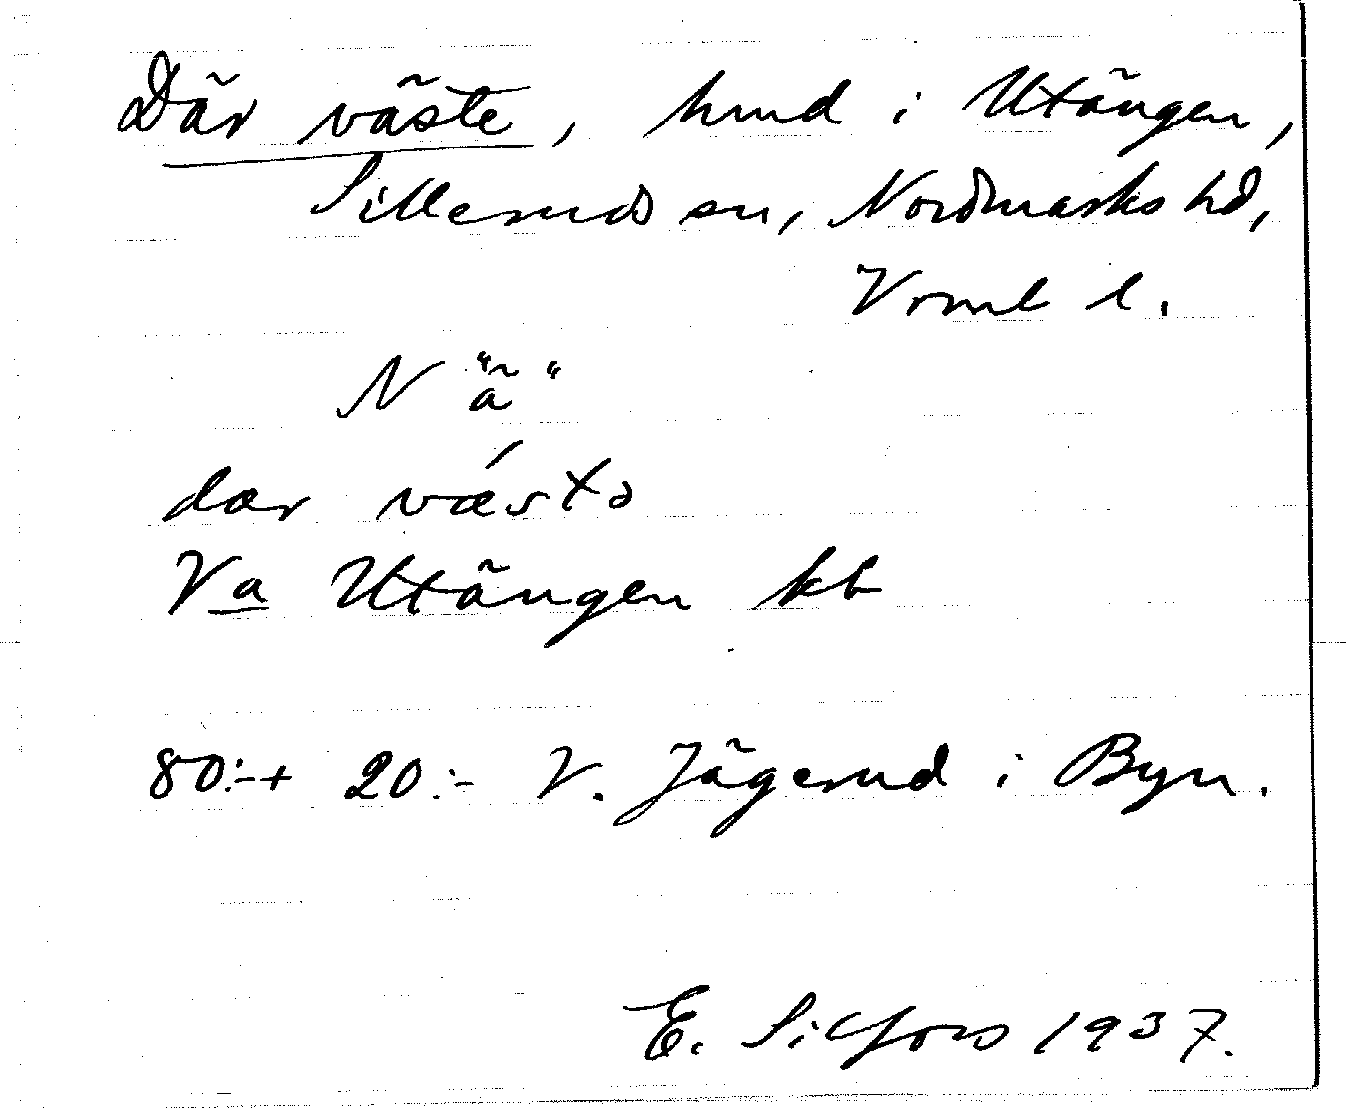 Där väste, hmd i Utängen,
Sillerud sn, Nordmarks hd,
Vrml l.
N "ä"
dær vǽstə
Va Utängen kb
80:-+ 20:- V. Jägerud i Byn.
E. Silfors 1937.